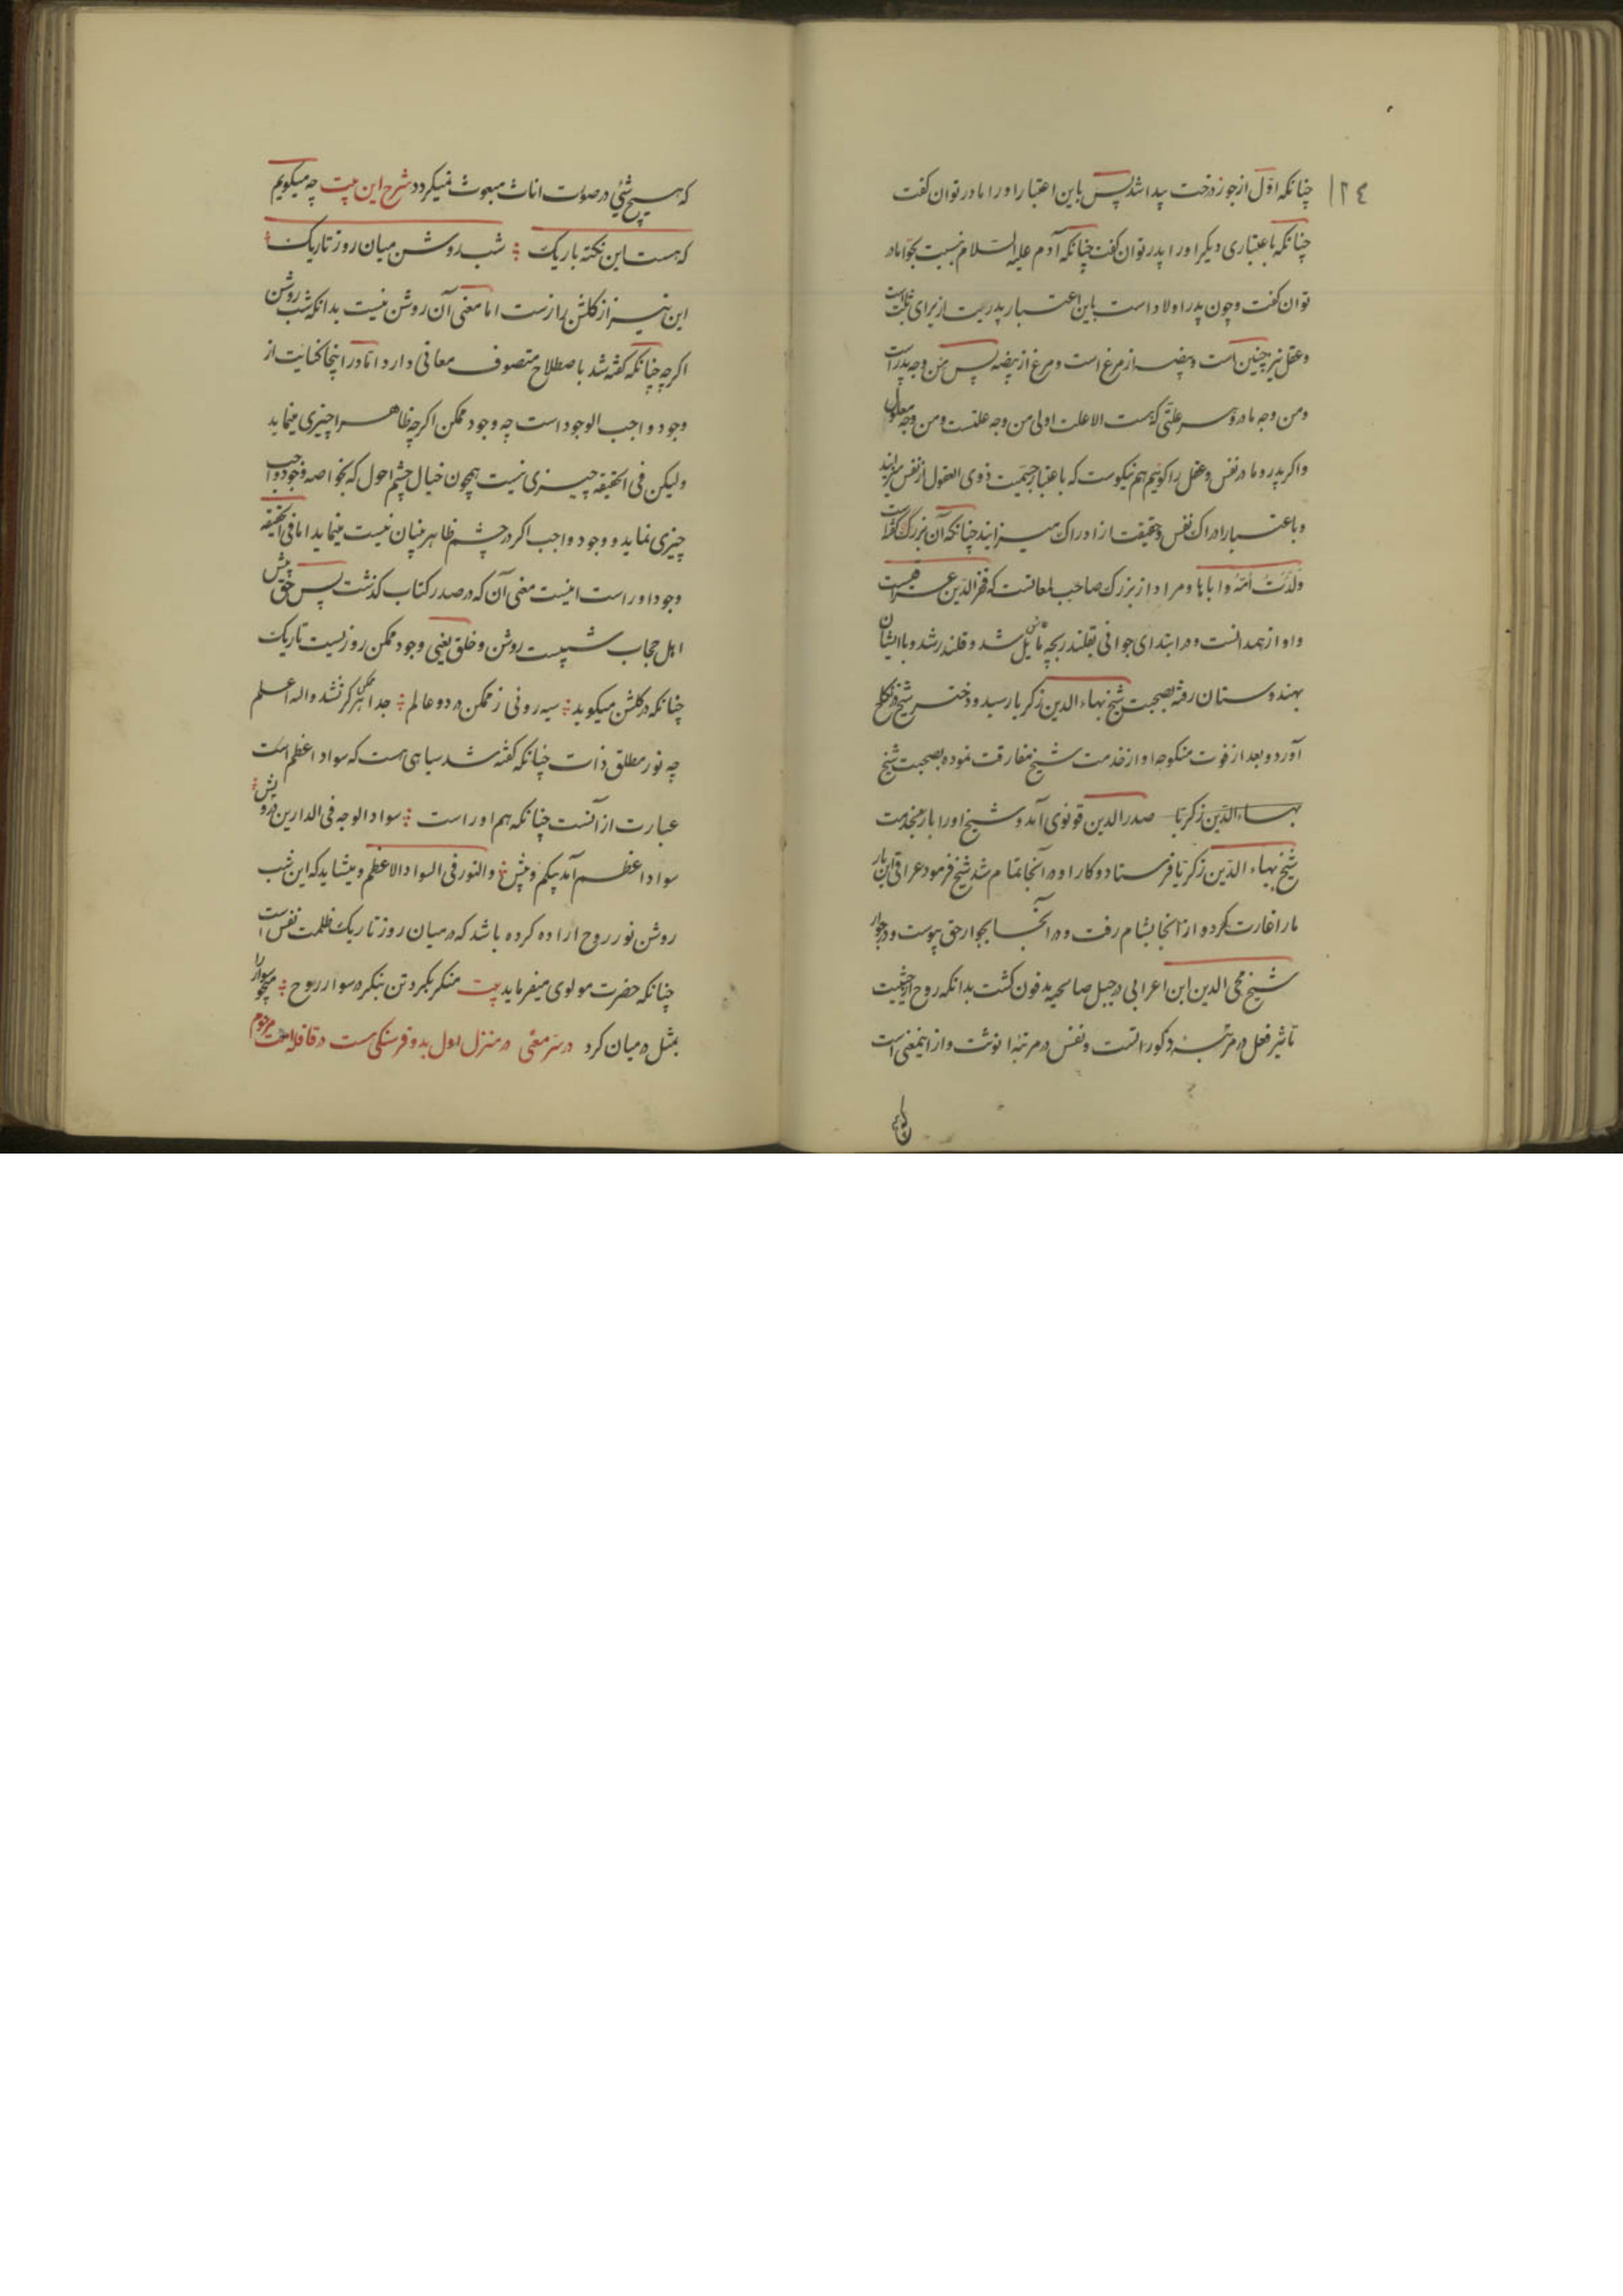 ۱۲۴
چنانکه اول از جوز درخت پیدا شد پس باین اعتبار او را مادر توان کفت
چنانکه باعتباری دیکر او را پدر توان کفت چنانکه آدم علیه السلام نسبت بحوا مادر
توان کفت و چون پدر اولاد است باین اعتبار پدریت از برای
وعقل نیز چنین است وبیضه از مرغ است و مرغ از بیضه پس من وجه پدر است
ومن وجه مادر و هر علتی که هست الا علت اولی من وجه علتست و من وجه معلول
واکر پدر و مادر نفس و عقل را کوئیم هم نیکوست که باعتبار جسمیت ذوی العقول از نفس میزایند
وباعتبار ادراک نفس و حقیقت از ادراک میزایند چنانکه آن بزرک کفته است
ولدت امه وا باها و مراد از بزرک صاحب لمعاتست که فخر الدین عراقیست
واو از همدانست و در ابتدای جوانی بقلندر بچه مایل شد و قلندر شد و با ایشان
بهندوستان رفته بصحبت شیخ بهاء الدین زکریا رسید و دختر شیخ در نکاح
آورد و بعد از فوت منکوحه او از خدمت شیخ مفارقت نموده بصحبت شیخ
بهاء الدین زکریا صدر الدین قونوی آمد و شیخ او را باز بخدمت
شیخ بهاء الدین زکریا فرستاد و کار او در آنجا تمام شد شیخ فرمود عراقی این بار
ما را غارت کرد و از آنجا بشام رفت و در آنجا بجوار حق پیوست و در جوار
شیخ محی الدین ابن اعرابی در جبل صالحیه مدفون کشت بدانکه روح از حیثیت
تاثیر فعل در مرتبه ذکوراتست و نفس در مرتبه انوثت و از اینمعنی است
که هیچ شیئ در صورت اناث مبعوث نمیکردد شرح این بیت چه میکویم
که هست این نکته باریک شب روشن میان روز تاریک
این نیز از کلشن رازست اما معنی آن روشن نیست بدانکه شب روشن
اکرچه چنانکه کفته شد باصطلاح متصوف معانی دارد اما در اینجا کنایت از
وجود واجب الوجود است چه وجود ممکن اکرچه ظاهرا چیزی مینماید
ولیکن فی الحقیقه چیزی نیست همچون خیال چشم احول که بخواصه وجود واجب
چیزی نماید و وجود واجب اکر در چشم ظاهر بینان نیست مینماید اما فی الحقیقه
وجود او راست اینست معنی آن که در صدر کتاب کذشت پس حق پیش
اهل حجاب شبیست روشن و خلق یعنی وجود ممکن روزیست تاریک
چنانکه در کلشن میکوید سیه روئی ز ممکن در دو عالم جدا هرکز نشد والله اعلم
چه نور مطلق ذات چنانکه کفته شد سیاهی هست که سواد اعظم است
عبارت از آنست چنانکه هم او راست سواد الوجه فی الدارین درویش
سواد اعظم آمد بیکم و بیش والنور فی السواد الاعظم و میشاید که این شب
روشن نور روح اراده کرده باشد که در میان روز تاریک ظلمت نفس است
چنانکه حضرت مولوی میفرماید بیت منکر بکرد تن بنکر در سوار روح میجو سوار را
بمثل در میان کرد در سر معنی در منزل اول بدو فرسنکی هست در قافله امت مرحوم